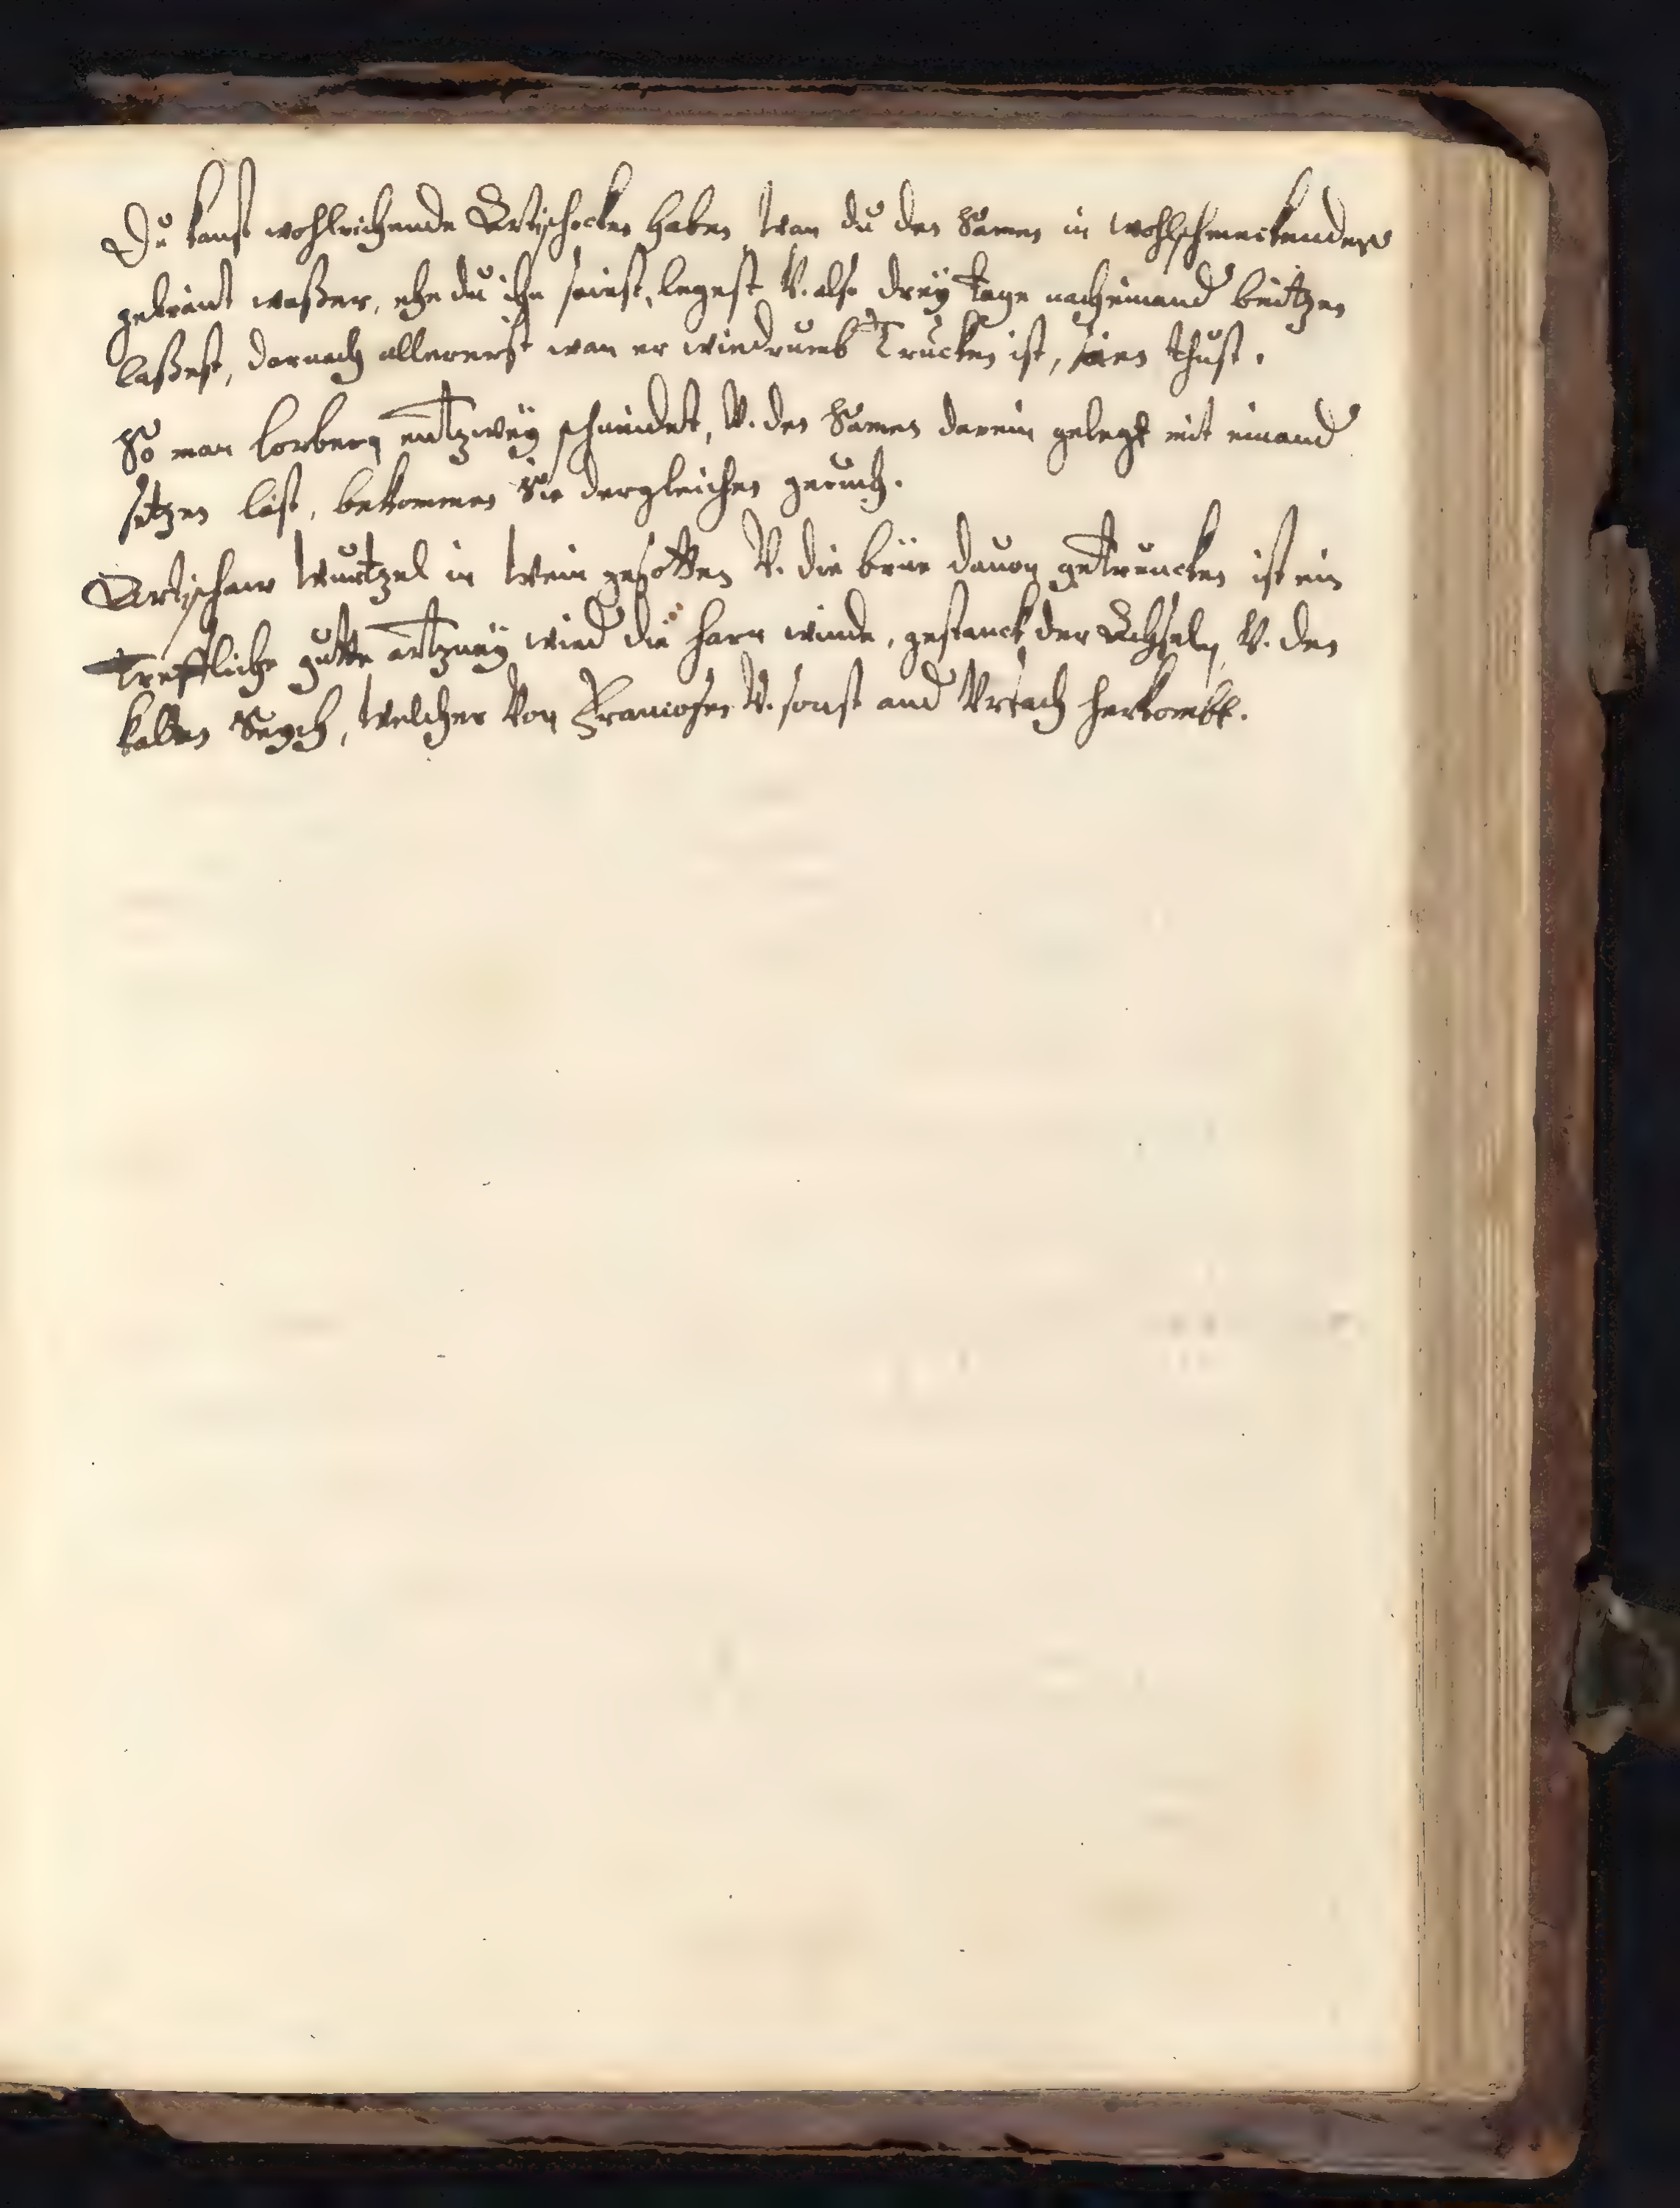 Du kanst wohlrichende Artischocken haben wan du den Samen in wohlschmeckendes
gebrant waßer, ehe du ihn säest, legest V. also dreÿ tage nacheinand beitzen
laßest, darnach allererst wan er wiedrumb Trucken ist, säen thust.
So man lorbern entzweÿ schneidet, V. den Samen darein gelegt mit einand
setzen läst, bekommen Sie dergleichen geruch.
Artischaw wurtzel in wein gesotten V. die brüe dauon getruncken ist ein
Treffliche gutte artzneÿ wied die harn winde, gestanck der Achseln, V. den
kalten Seych, welcher von Francosen V. sonst and Vrsach herkombt.